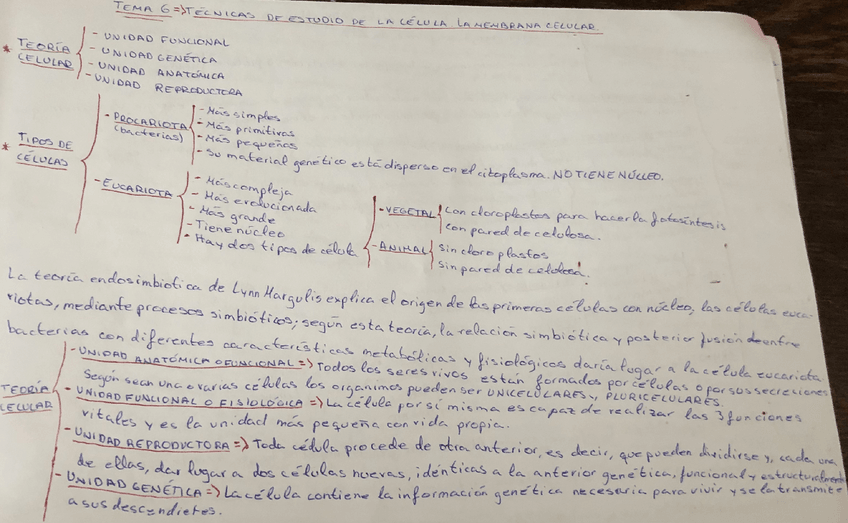 TEMA 6 => TÉCNICAS DE ESTUDIO DE LA CÉLULA LA MEMBRANA CELULAR.
* TEORÍA CELULAR
- UNIDAD FUNCIONAL
- UNIDAD GENÉTICA
- UNIDAD ANATÓMICA
- UNIDAD REPRODUCTORA
* TIPOS DE CÉLULAS
- PROCARIOTA (bacterias)
- Más simples
- Más primitivas
- Más pequeñas
- Su material genético está disperso en el citoplasma. NO TIENE NÚCLEO.
- EUCARIOTA
- Más compleja
- Más evolucionada
- Más grande
- Tiene núcleo
- Hay dos tipos de célula
- VEGETAL
Con cloroplastos para hacer la fotosíntesis
con pared de celulosa.
- ANIMAL
Sin cloroplastos
Sin pared de celulosa.
La teoría endosimbiotica de Lynn Margulis explica el origen de las primeras células con núcleo, las células euca-
riotas, mediante procesos simbióticos; según esta teoría, la relación simbiótica y posterior fusión de entre
bacterias con diferentes características metabólicas y fisiológicos daría lugar a la célula eucariota
TEORÍA CELULAR
- UNIDAD ANATÓMICA O FUNCIONAL => Todos los seres vivos están formados por células o por sus secreciones
Según sean una o varias células los organimos pueden ser UNICELULARES y PLURICELULARES.
- UNIDAD FUNCIONAL O FISIOLÓGICA => La célula por si misma es capaz de realizar las 3 funciones
vitales y es la unidad más pequeña con vida propia.
- UNIDAD REPRODUCTORA => Toda célula procede de otra anterior, es decir, que pueden dividirse y, cada una
de ellas, dar lugar a dos células nuevas, idénticas a la anterior genética, funcional y estructuralmente
- UNIDAD GENÉTICA => La célula contiene la información genética necesaria para vivir y se la transmite
a sus descendietes.